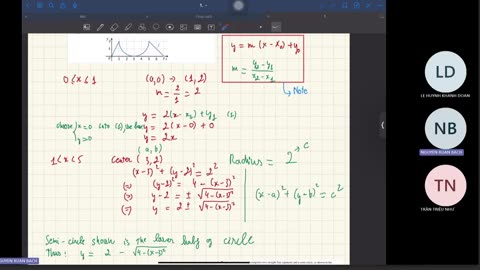 y = m (x - x₀) + y₀
m = (y₂ - y₁)/(x₂ - x₁)
Note
0 ≤ x ≤ 1
(0,0) → (1,2)
m = 2/1 = 2
y = 2(x - x₁) + y₁ (1)
choose x = 0 into (1), we have y = 2(x - 0) + 0
y = 0
y = 2x
(a, b)
1 < x < 5
Center (3,2)
Radius = 2 → c
(x-3)² + (y-2)² = 2²
(=) (y-2)² = 4 - (x-3)²
(=) y - 2 = ± √4-(x-3)²
(=) y = 2 ± √4-(x-3)²
(x-a)² + (y+b)² = c²
Semi-circle shown is the lower half of circle
Thus: y = 2 - √4-(x-3)²
LD
LE HUYNH KHANH DOAN
NB
NGUYEN XUAN BACH
TN
TRẦN TRIỆU NHƯ
NGUYEN XUAN BACH